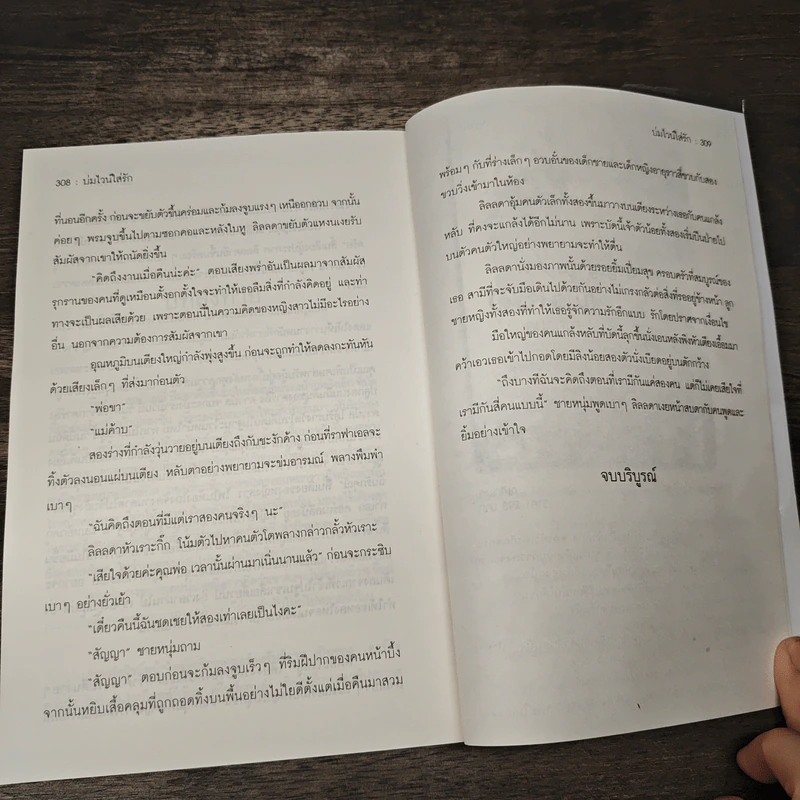 308 : บ่มไวน์ใส่รัก
ที่นอนอีกครั้ง ก่อนจะขยับตัวขึ้นคร่อมและก้มลงจูบแรงๆ เหนืออกอวบ จากนั้น
ค่อยๆ พรมจูบขึ้นไปตามซอกคอและหลังใบหู ลิลลดาขยับตัวแหงนเงยรับ
สัมผัสจากเขาให้ถนัดยิ่งขึ้น
“คิดถึงงานเมื่อคืนน่ะค่ะ” ตอบเสียงพร่าอันเป็นผลมาจากสัมผัส
รุกรานของคนที่ดูเหมือนตั้งอกตั้งใจจะทำให้เธอลืมสิ่งที่กำลังคิดอยู่ และท่า
ทางจะเป็นผลเสียด้วย เพราะตอนนี้ในความคิดของหญิงสาวไม่มีอะไรอย่าง
อื่น นอกจากความต้องการสัมผัสจากเขา
อุณหภูมิบนเตียงใหญ่กำลังพุ่งสูงขึ้น ก่อนจะถูกทำให้ลดลงกะทันหัน
ด้วยเสียงเล็กๆ ที่ส่งมาก่อนตัว
“พ่อขา”
“แม่ค้าบ”
สองร่างที่กำลังวุ่นวายอยู่บนเตียงถึงกับชะงักค้าง ก่อนที่ราฟาเอลจะ
ทิ้งตัวลงนอนแผ่บนเตียง หลับตาอย่างพยายามจะข่มอารมณ์ พลางพึมพำ
เบาๆ
“ฉันคิดถึงตอนที่มีแต่เราสองคนจริงๆ นะ”
ลิลลดาหัวเราะกิ๊ก โน้มตัวไปหาคนตัวโตพลางกล่าวกลั้วหัวเราะ
“เสียใจด้วยค่ะคุณพ่อ เวลานั้นผ่านมาเนิ่นนานแล้ว” ก่อนจะกระซิบ
เบาๆ อย่างยั่วเย้า
“เดี๋ยวคืนนี้ฉันชดเชยให้สองเท่าเลยเป็นไงคะ”
“สัญญา” ชายหนุ่มถาม
“สัญญา” ตอบก่อนจะก้มลงจูบเร็วๆ ที่ริมฝีปากของคนหน้าบึ้ง
จากนั้นหยิบเสื้อคลุมที่ถูกถอดทิ้งบนพื้นอย่างไม่ไยดีตั้งแต่เมื่อคืนมาสวม
บ่มไวน์ใส่รัก : 309
พร้อมๆ กับที่ร่างเล็กๆ อวบอั๋นของเด็กชายและเด็กหญิงอายุราวสี่ขวบกับสอง
ขวบวิ่งเข้ามาในห้อง
ลิลลดาอุ้มคนตัวเล็กทั้งสองขึ้นมาวางบนเตียงระหว่างเธอกับคนแกล้ง
หลับ ที่คงจะแกล้งได้อีกไม่นาน เพราะบัดนี้เจ้าตัวน้อยทั้งสองเริ่มปีนป่ายไป
บนตัวคนตัวใหญ่อย่างพยายามจะทำให้ตื่น
ลิลลดานั่งมองภาพนั้นด้วยรอยยิ้มเปี่ยมสุข ครอบครัวที่สมบูรณ์ของ
เธอ สามีที่จะจับมือเดินไปด้วยกันอย่างไม่เกรงกลัวต่อสิ่งที่รออยู่ข้างหน้า ลูก
ชายหญิงทั้งสองที่ทำให้เธอรู้จักความรักอีกแบบ รักโดยปราศจากเงื่อนไข
มือใหญ่ของคนแกล้งหลับที่บัดนี้ลุกขึ้นนั่งเอนหลังพิงหัวเตียงเอื้อมมา
คว้าเอวเธอเข้าไปกอดโดยมีลิงน้อยสองตัวนั่งเบียดอยู่บนตักกว้าง
“ถึงบางทีฉันจะคิดถึงตอนที่เรามีกันแค่สองคน แต่ก็ไม่เคยเสียใจที่
เรามีกันสี่คนแบบนี้” ชายหนุ่มพูดเบาๆ ลิลลดาเงยหน้าสบตากับคนพูดและ
ยิ้มอย่างเข้าใจ
จบบริบูรณ์